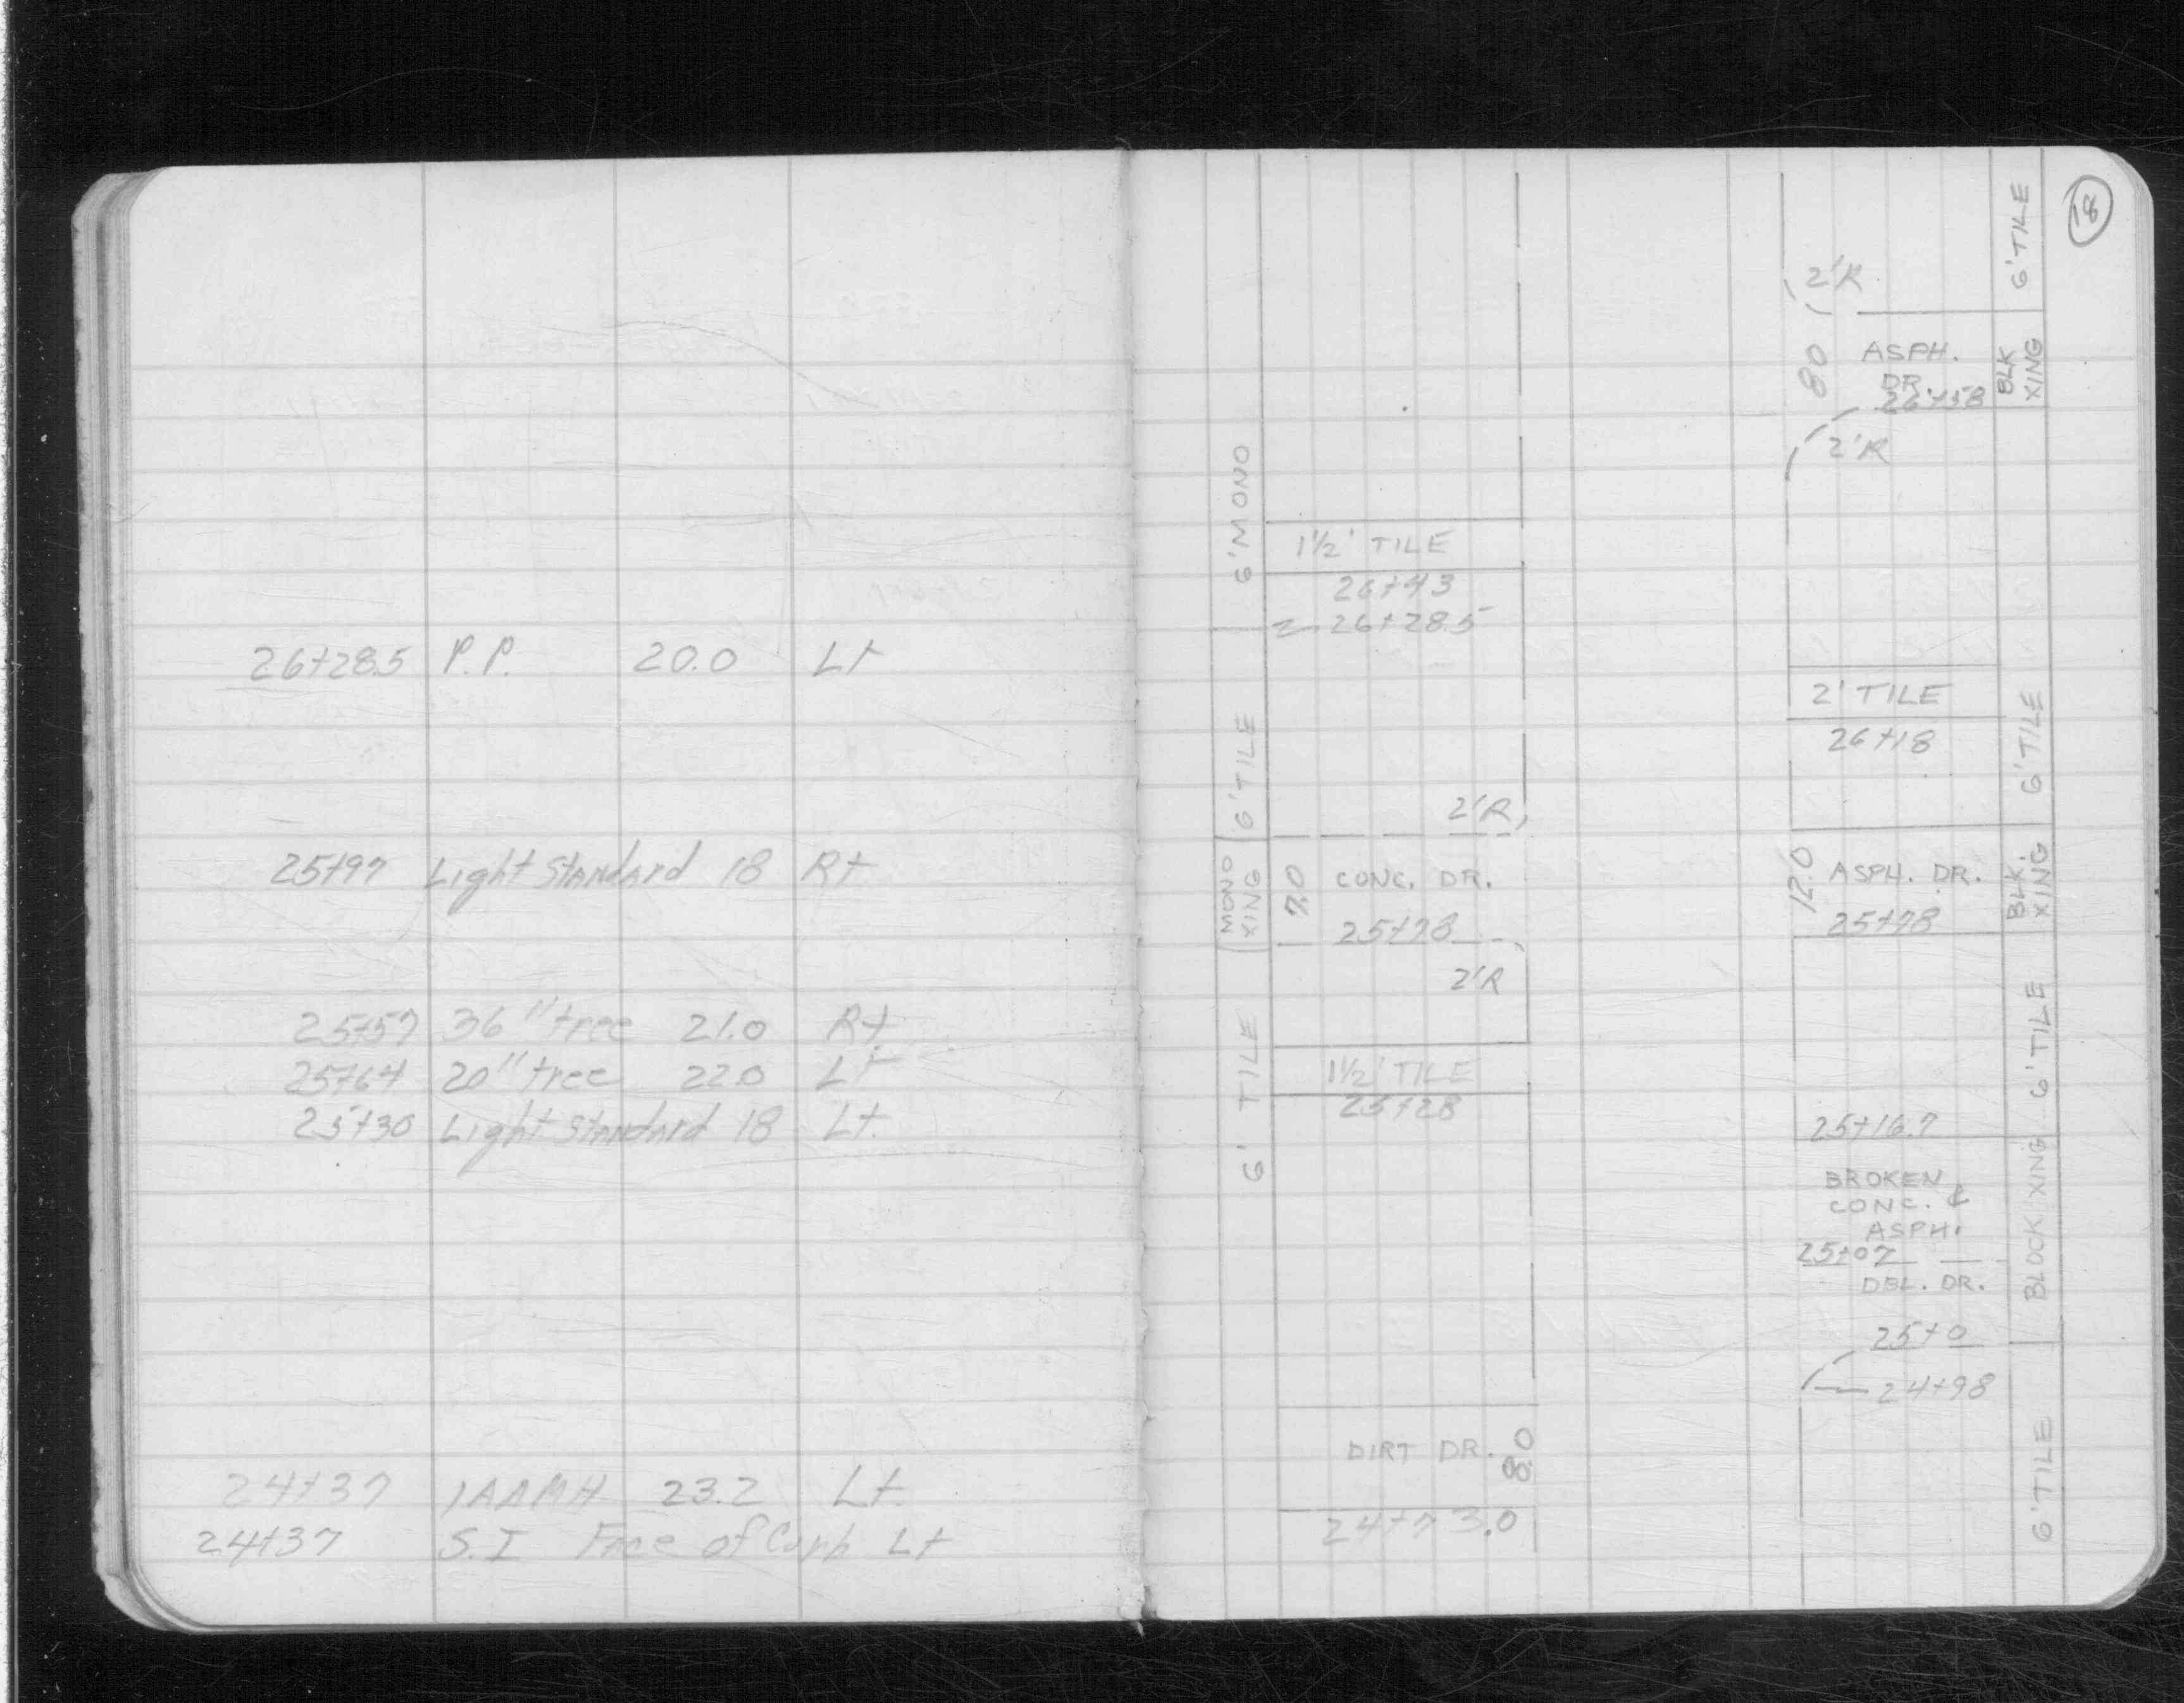 26+28.5 P.P. 20.0 Lt
25+97 Light Standard 18 Rt
25+57 36" tree 21.0 Rt
25+64 20" tree 22.0 Lt
25+30 Light Standard 18 Lt.
24+37 23.2 Lt.
24+37 S.I Face of Curb Lt
18
6' MONO
1½' TILE
26+43
26+28.5
6' TILE
2'R
MONO XING
7.0
CONC. DR.
25+78
2'R
6' TILE
1½' TILE
25+28
DIRT DR.
8.0
24+73.0
6' TILE
2'R
80
ASPH.
DR.
26+58
BLK XING
2'R
2' TILE
26+18
6' TILE
12.0
ASPH. DR.
25+78
BLK. XING
6' TILE
25+16.7
BROKEN
CONC. &
ASPH.
25+07
DBL. DR.
BLOCK XING
25+0
24+98
6' TILE